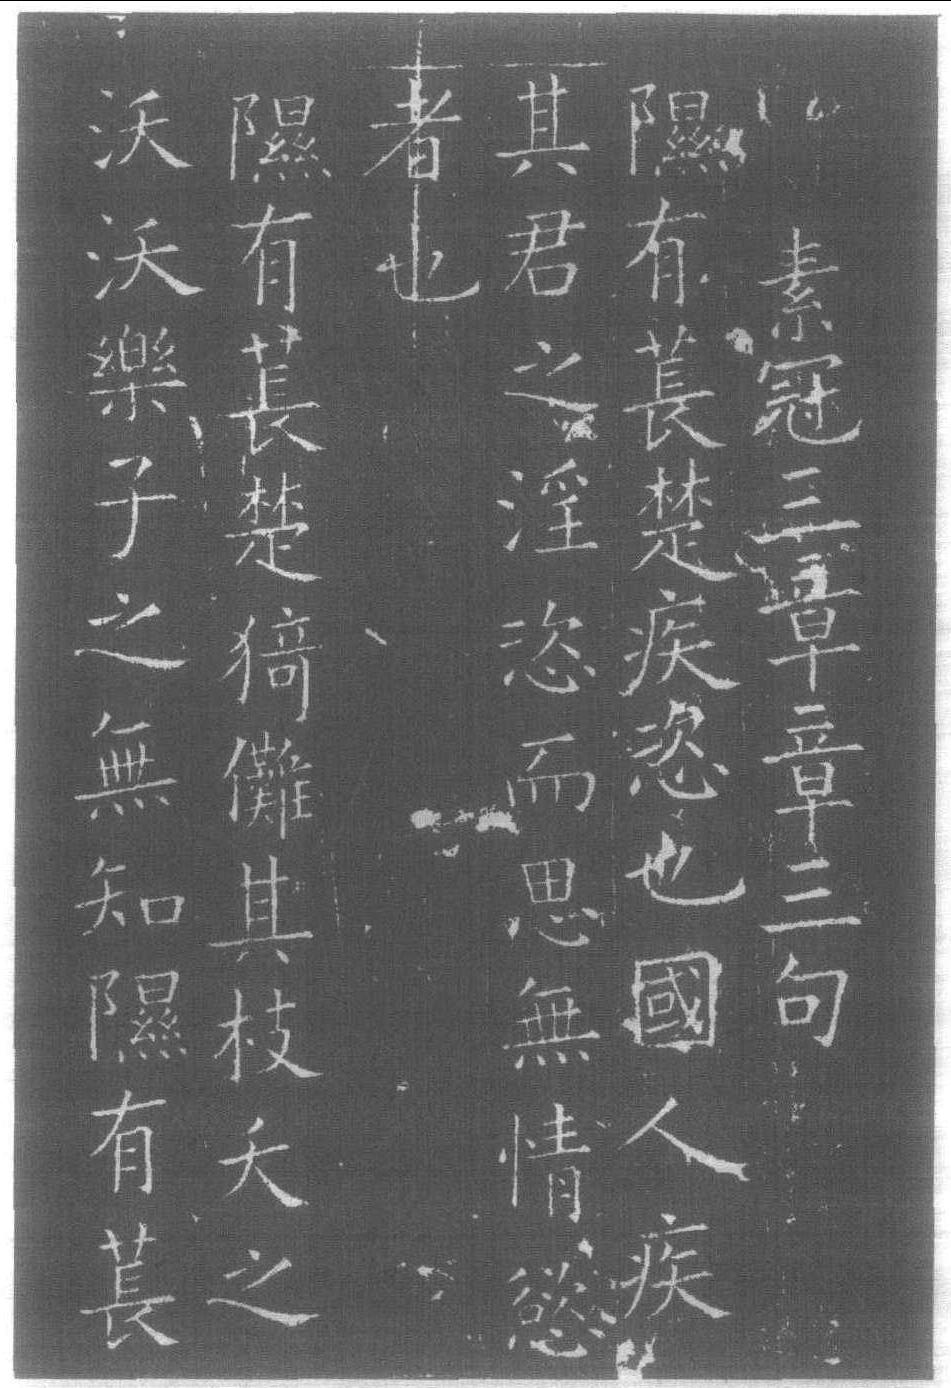 素冠三章章三句
隰有萇楚疾恣也國人疾
其君之淫恣而思無情慾
者也
隰有萇楚猗儺其枝夭之
沃沃樂子之無知隰有萇